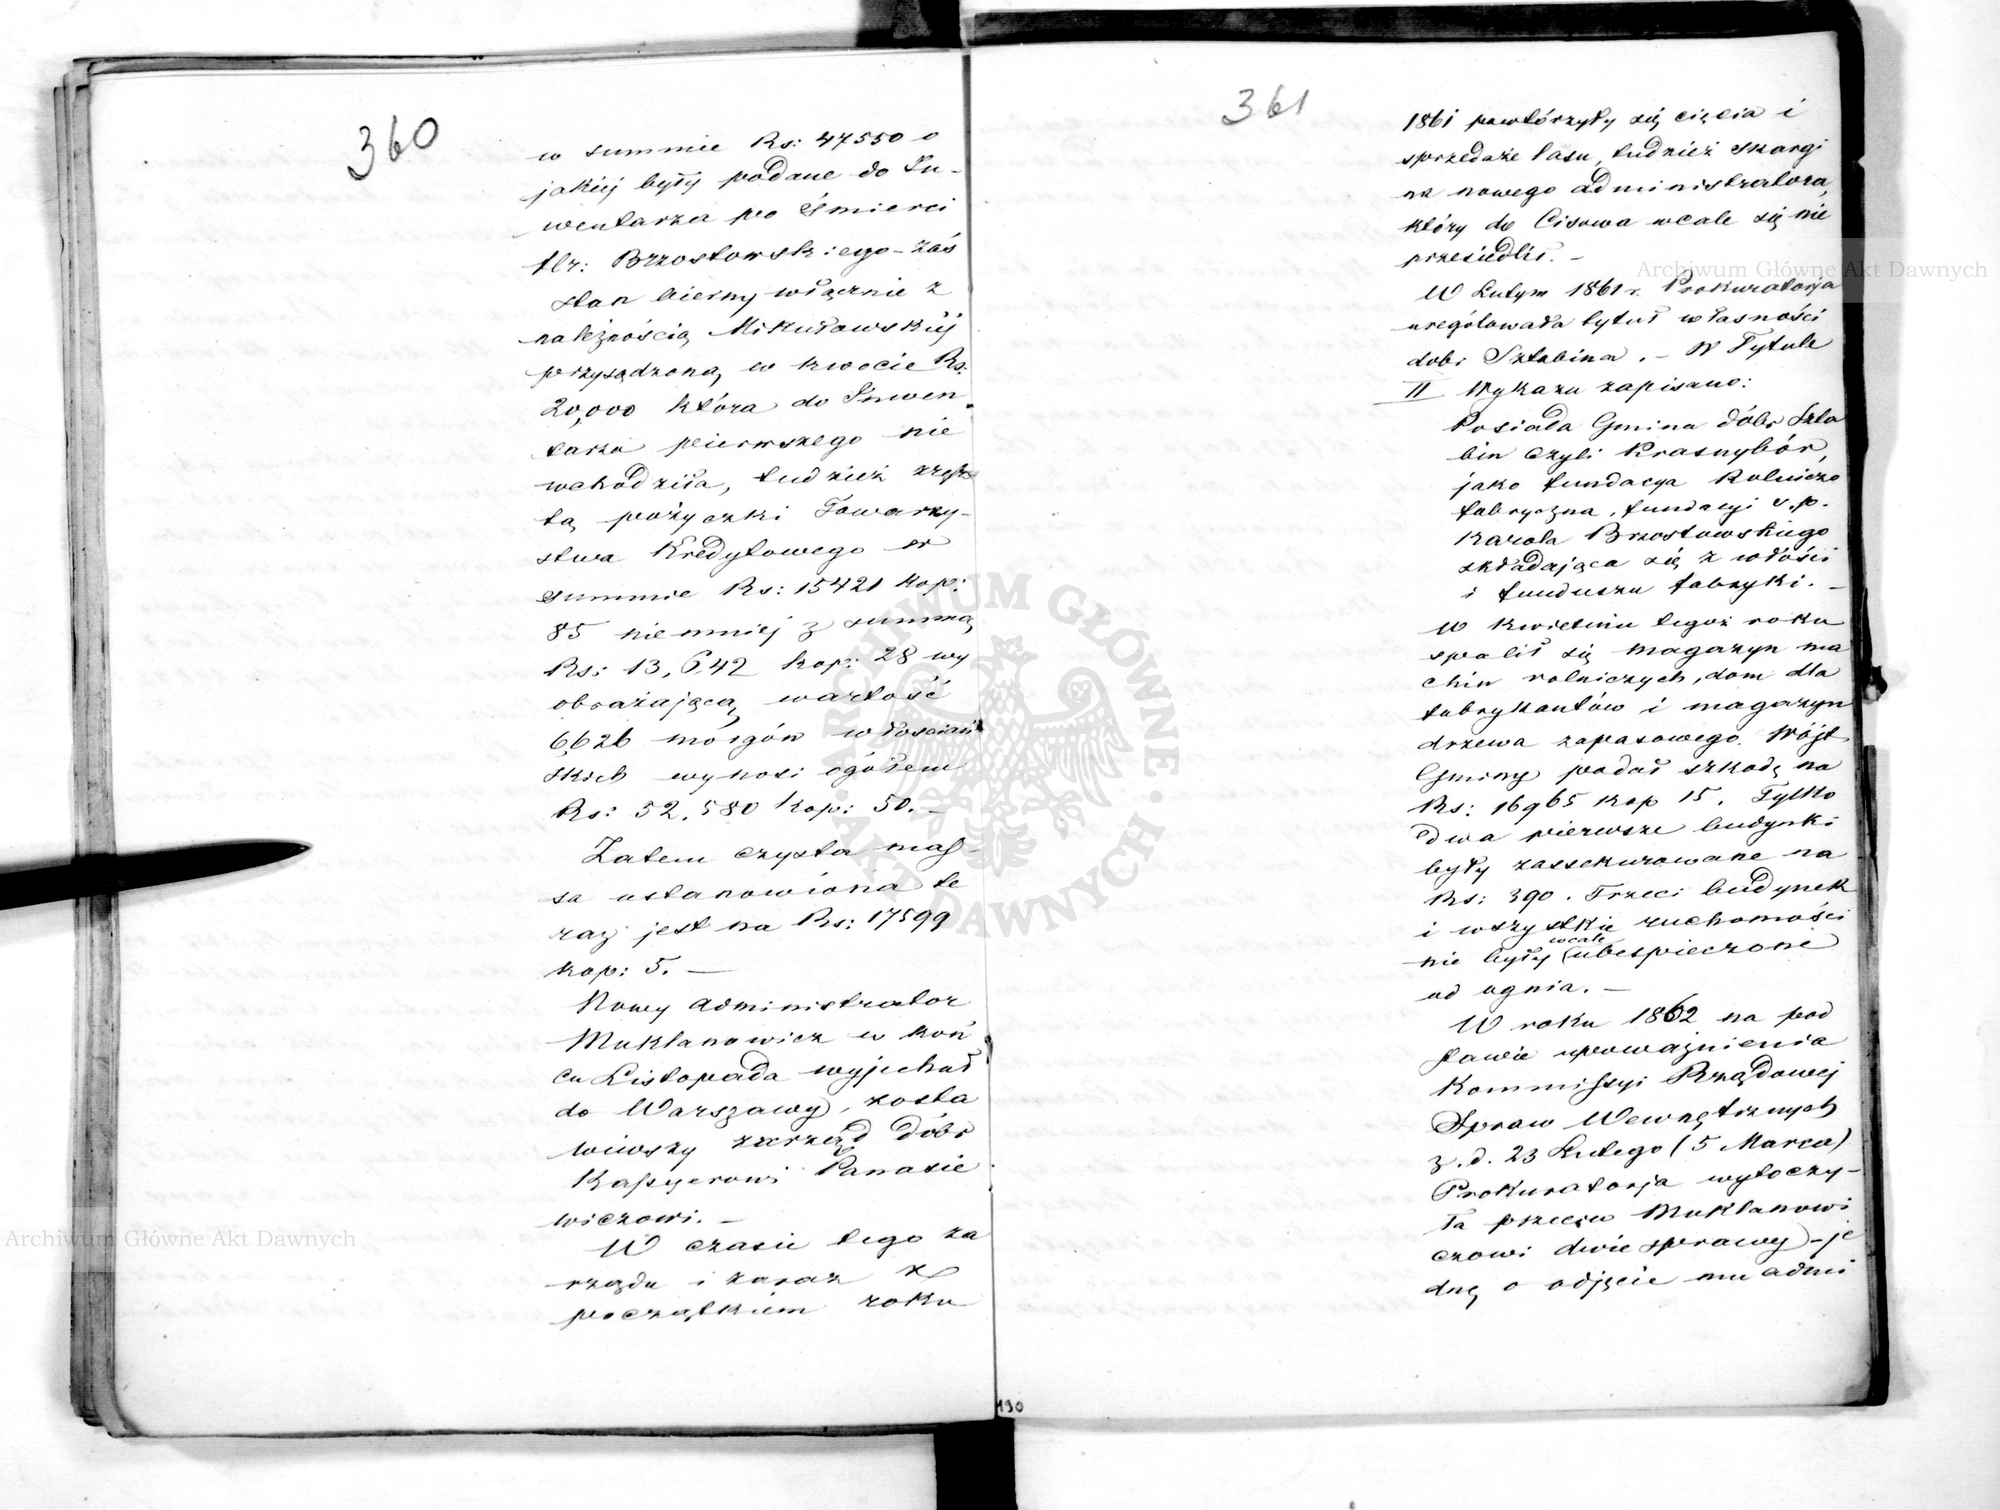 360
w summie Rs: 47550 o
jakiej były podane do In-
wentarza po śmierci
Hr: Brzostowskiego – zaś
stan bierny włącznie z
należnością Mikułowskiéj
przysądzoną w kwocie Rs.
20,000 która do Inwen
tarza pierwszego nie
wchodziła, tudzież resz
tą pożyczki Towarzy-
stwa Kredytowego w
summie Rs: 15421 kop:
85 niemniéj z summą
Rs: 13,642 kop: 28 wy
obrażającą wartość
6,626 morgów włościań
skich wynosi ogółem
Rs: 52,580 kop: 50. –
Zatem czysta mas-
sa ustanowiona te
raz jest na Rs: 17599
kop: 5. —
Nowy administrator
Muklanowicz w koń
cu Listopada wyjechał
do Warszawy, zosta
wiwszy zarząd dóbr
Kasperowi Panasie
wiczowi. –
W czasie tego za
rządu i zaraz z
początkiem roku
361
1861 powtórzyły się cięcia i
sprzedaże lasu, tudzież skargi
na nowego administratora,
który do Cisowa wcale się nie
przesiedlił. –
W Lutym 1861 r. Prokuratorja
uregulowała tytuł własności
dóbr Sztabina. – W Tytule
II Wykazu zapisano:
Posiada Gmina dóbr Szta
bin czyli Krasnybór,
jako fundacya Rolniczo
fabryczna, fundacyi s.p.
Karola Brzostowskiego
składająca się z włości
i funduszu fabryki. –
W Kwietniu tegoż roku
spalił się magazyn ma
chin rolniczych, dom dla
fabrykantów i magazyn
drzewa zapasowego. Wójt
Gminy podał szkodę na
Rs: 16965 kop 15. Tylko
dwa pierwsze budynki
były zassekurowane na
Rs: 390. Trzeci budynek
i wszystkie ruchomości
nie były wcale ubespieczone
od ognia. –
W roku 1862 na pod
stawie upoważnienia
Kommissyi Rządowej
Spraw Wewnętrznych
z. d. 23 Lutego (5 Marca)
Prokuratorja wytoczy-
ła przeciw Muklanowi
czowi dwie sprawy – je
dnę o odjęcie mu admi
190
Archiwum Główne Akt Dawnych
Archiwum Główne Akt Dawnych
ARCHIWUM GŁÓWNE AKT DAWNYCH